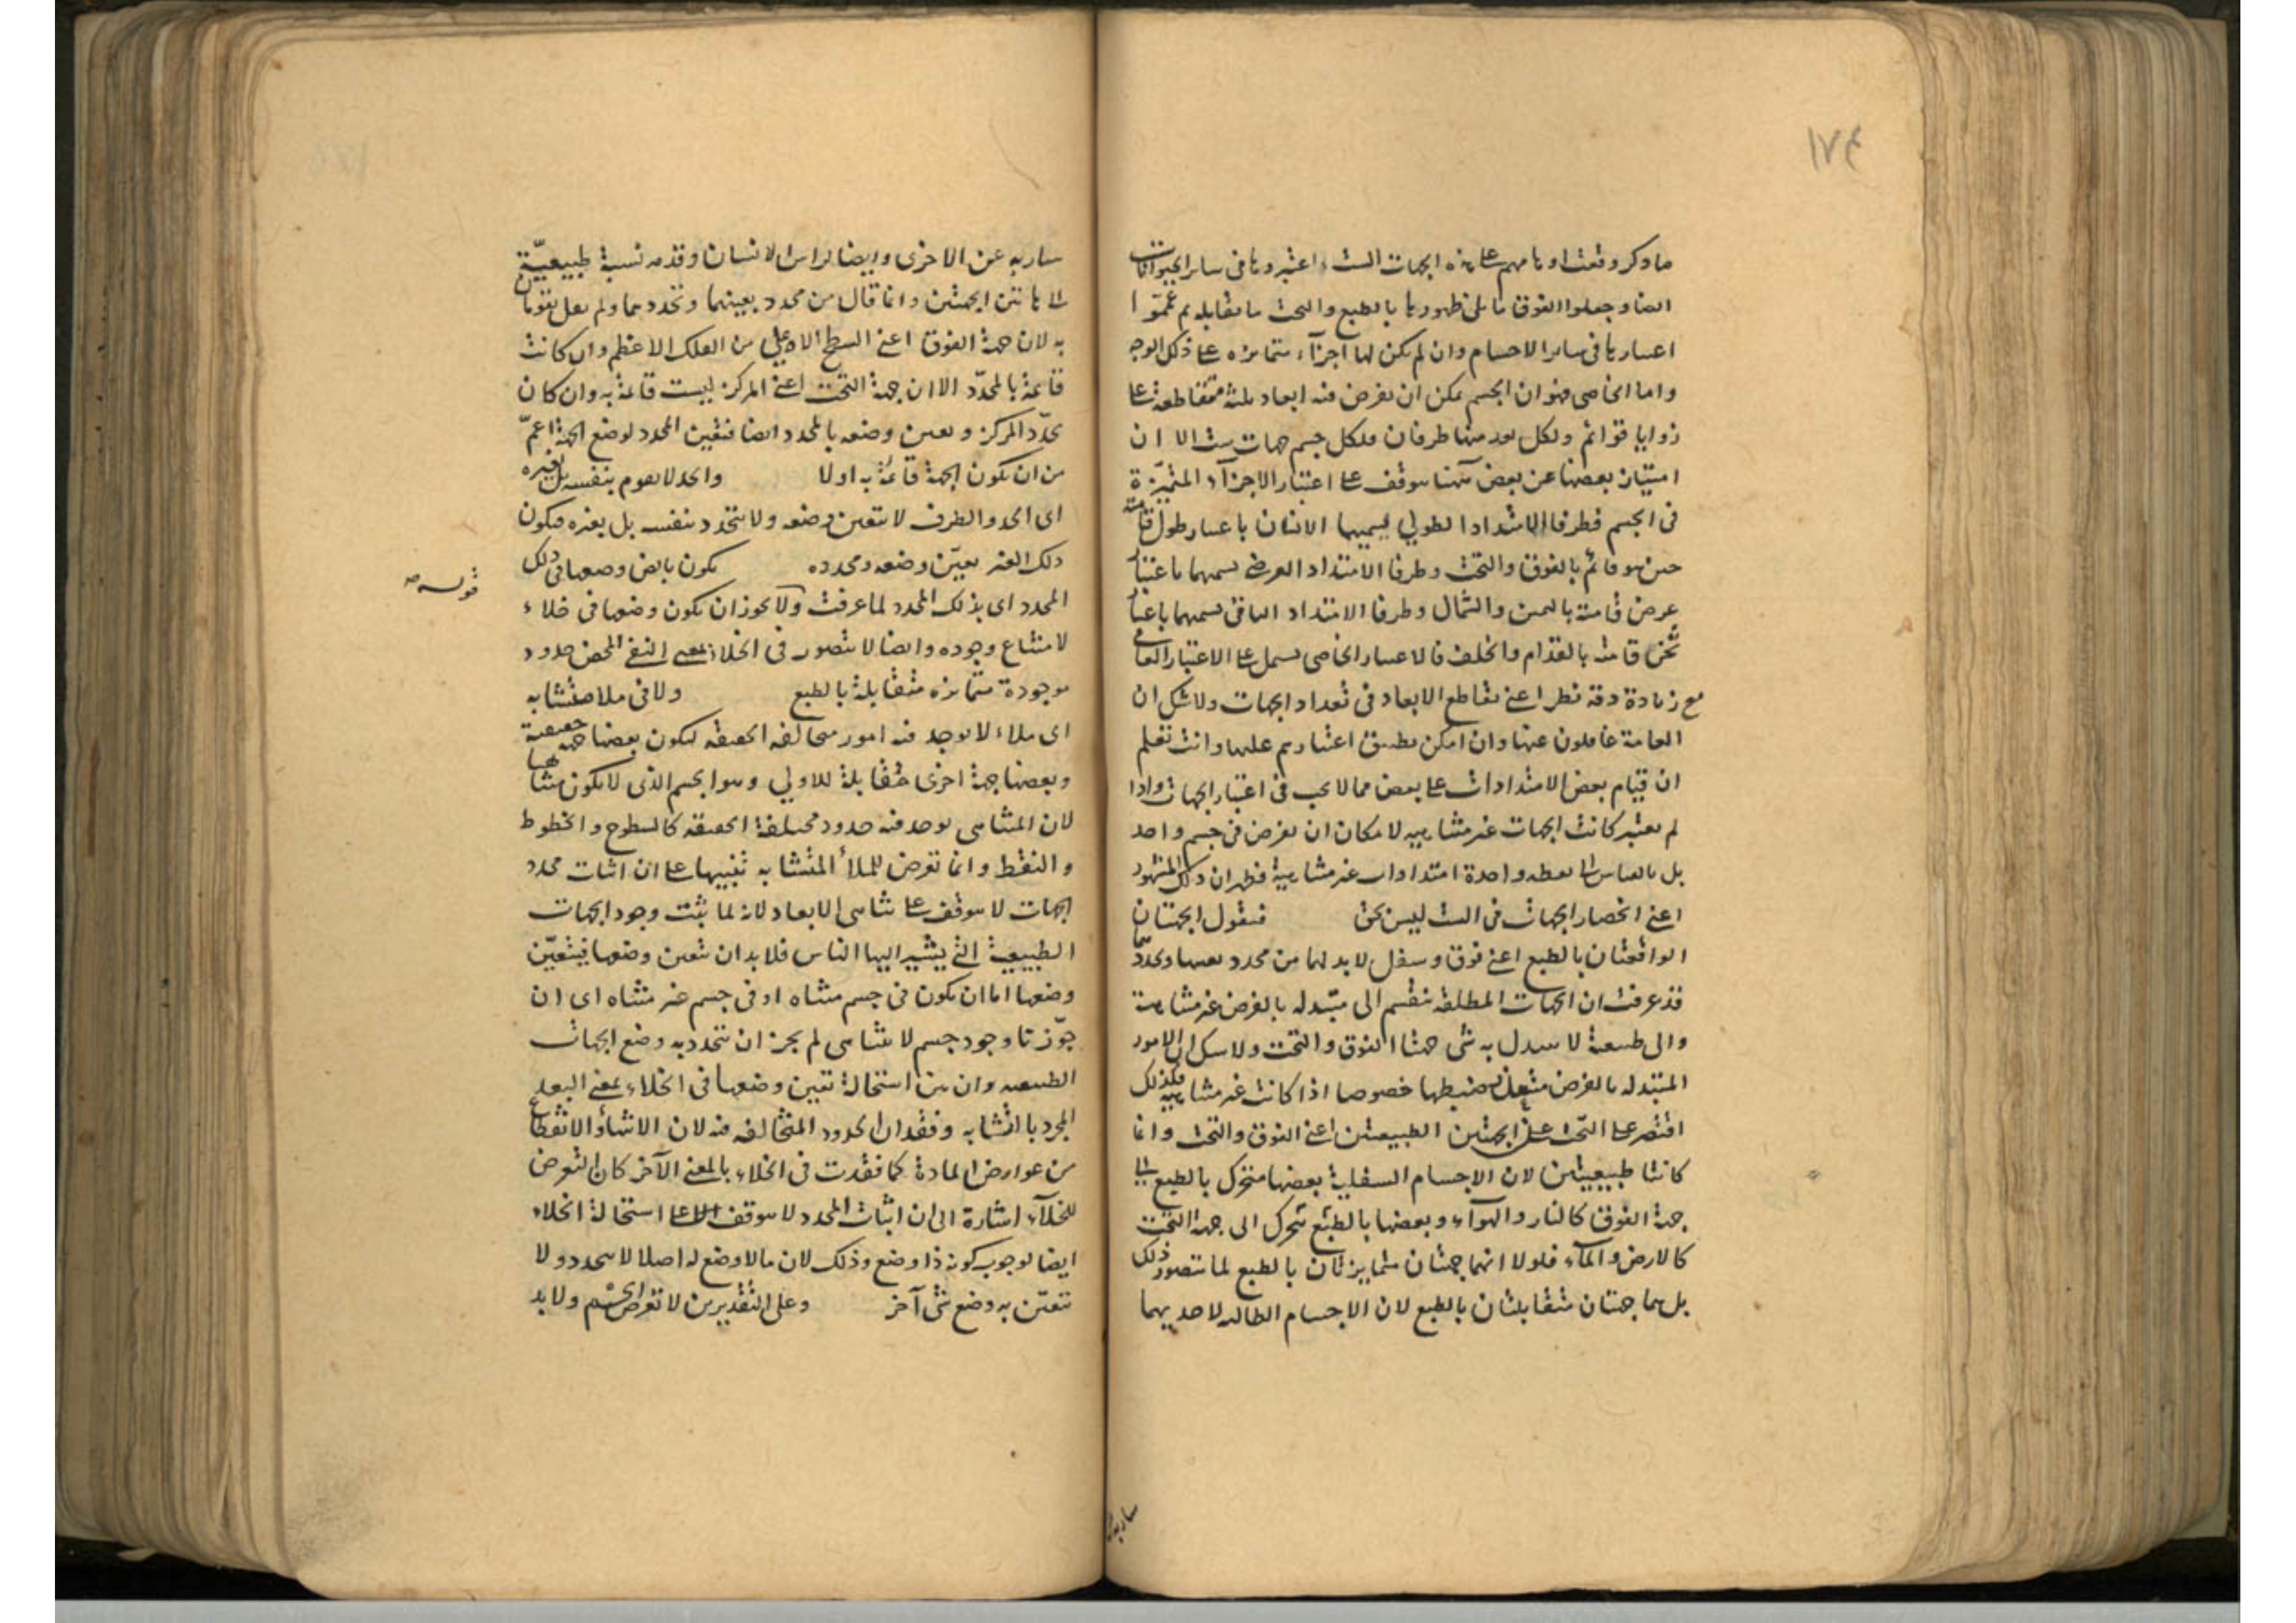 ١٧٤
ما ذكر وقعت اوهامهم على هذه الجهات الست واعتبروها فى ساير الحيوانات
ايضا وجعلوا الفوق ما يلى ظهورها بالطبع والتحت ما يقابله ثم عمموا
اعتبارها فى ساير الاجسام وان لم يكن لها اجزاء متمايزه على ذلك الوجه
واما الخاصى فهو ان الجسم يمكن ان يفرض فيه ابعاد ثلثة متقاطعة على
زوايا قوائم ولكل بعد منها طرفان فلكل جسم جهات ست الا ان
امتياز بعضها عن بعض منها يتوقف على اعتبار الاجزاء المتميّزة
فى الجسم فطرفا الامتداد الطولي يسميهما الانسان باعتبار طول قامته
حين هو قائم بالفوق والتحت وطرفا الامتداد العرضى يسميهما باعتبار
عرض قامته باليمين والشمال وطرفا الامتداد الباقى يسميهما باعتبار
ثخن قامته بالقدام والخلف فالاعتبار الخاصى يشمل على الاعتبار العامى
مع زيادة دقة نظر اعنى تقاطع الابعاد فى تعداد الجهات ولا شك ان
العامة غافلون عنها وان امكن تطبيق اعتبارهم عليها وانت تعلم
ان قيام بعض الامتدادات على بعض مما لا يجب فى اعتبار الجهات واذا
لم يعتبر كانت الجهات غير متناهيه لامكان ان يفرض فى جسم واحد
بل بالقياس الى نقطه واحدة امتدادات غير متناهية فظهر ان ذلك المشهور
اعنى انحصار الجهات فى الست ليس بحق فنقول الجهتان
الواقعتان بالطبع اعنى فوق وسفل لا بد لهما من محدد يعينهما ويحددهما
قد عرفت ان الجهات المطلقة تنقسم الى متبدله بالفرض غير متناهية
والى طبيعية لا يتبدل به شى جهتا الفوق والتحت ولا شك ان الامور
المتبدله بالفرض ضبطها خصوصا اذا كانت غير متناهيه فلذلك
اقتصر على الجهتين الطبيعتين اعنى الفوق والتحت وانما
كانتا طبيعيتين لان الاجسام السفلية بعضها متحرك بالطبع الى
جهة الفوق كالنار والهوآء وبعضها بالطبع يتحرك الى جهة التحت
كالارض والمآء فلولا انهما جهتان متمايزتان بالطبع لما تتصور ذلك
بل هما جهتان متقابلتان بالطبع لان الاجسام الطالبه لاحديهما
هاربه عن الاخرى وايضا لراس الانسان وقدمه نسبة طبيعيّة
الى هاتين الجهتين وانما قال من محدد يعينهما وتحددهما ولم يقل يقومان
به لان جهة الفوق اعنى السطح الاعلى من الفلك الاعظم وان كانت
قائمة بالمحدّد الا ان جهة التحت اعنى المركز ليست قائمة به وان كان
تحدّد المركز وتعين وضعه بالمحدد ايضا فتعين المحدد لوضع الجهة اعمّ
من ان يكون الجهة قائمة به اولا والحد لا يقوم بنفسه بل بغيره
اى الحد والطرف لا يتعين وضعه ولا يتحدد بنفسه بل بغيره فيكون
ذلك الغير يعيّن وضعه ومحدده يكون وضعها فى ذلك
قوله
المحدد اى بذلك المحدد لما عرفت ولا يجوز ان يكون وضعها فى خلاء
لامتناع وجوده وايضا لا يتصور فى الخلاء بمعنى النفى المحض حدود
موجودة متمايزه متقابلة بالطبع ولا فى ملا متشابه
اى ملاء لا يوجد فيه امور متخالفه الحقيقه ليكون بعضها جهة حقيقية
وبعضها جهة اخرى مقابلة للاولي وهو الجسم الذى لا يكون متناهيا
لان المتناهى يوجد فيه حدود مختلفة الحقيقه كالسطوح والخطوط
والنقط وانما تعرض للملأ المتشابه تنبيها على ان اثبات محدد
الجهات لا يتوقف على تناهى الابعاد لانه لما ثبت وجود الجهات
الطبيعية التى يشير اليها الناس فلا بد ان تتعين وضعها فيتعيّن
وضعها اما ان يكون فى جسم متناه او فى جسم غير متناه اى ان
جوّزنا وجود جسم لا يتناهى لم يجز ان يتحدد به وضع الجهات
الطبيعيه وان بين استحالة تعين وضعها فى الخلاء بمعنى البعد
المجرد بالتشابه وفقدان الحدود المتخالفه فيه لان الانتهاء والانقطاع
من عوارض المادة كما فقدت فى الخلاء بالمعنى الآخر كان التعرض
للخلآء اشارة الى ان اثبات المحدد لا يتوقف على استحالة الخلاء
ايضا لوجوب كونه ذا وضع وذلك لان ما لا وضع له اصلا لا يتحدد ولا
يتعيّن به وضع شى آخر وعلى التقديرين لا تعرض ولا بد